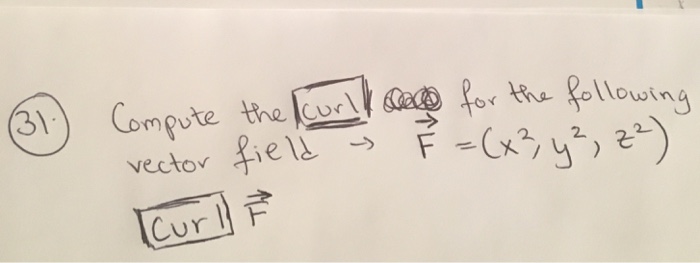 31.) Compute the curl for the following
vector field → F⃗ = (x², y², z²)
Curl F⃗